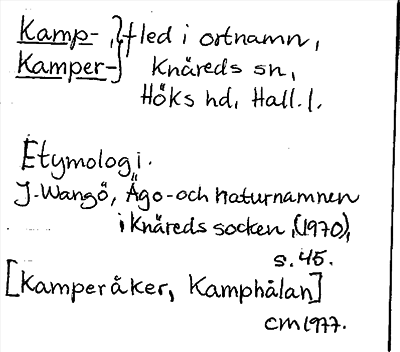 Kamp-, } fled i ortnamn,
Kamper- } Knäreds sn,
Höks hd, Hall. l.
Etymologi.
J. Wangö, Ägo- och naturnamnen
i Knäreds socken, (1970),
s. 45.
[Kamperåker, Kamphålan]
CM 1977.